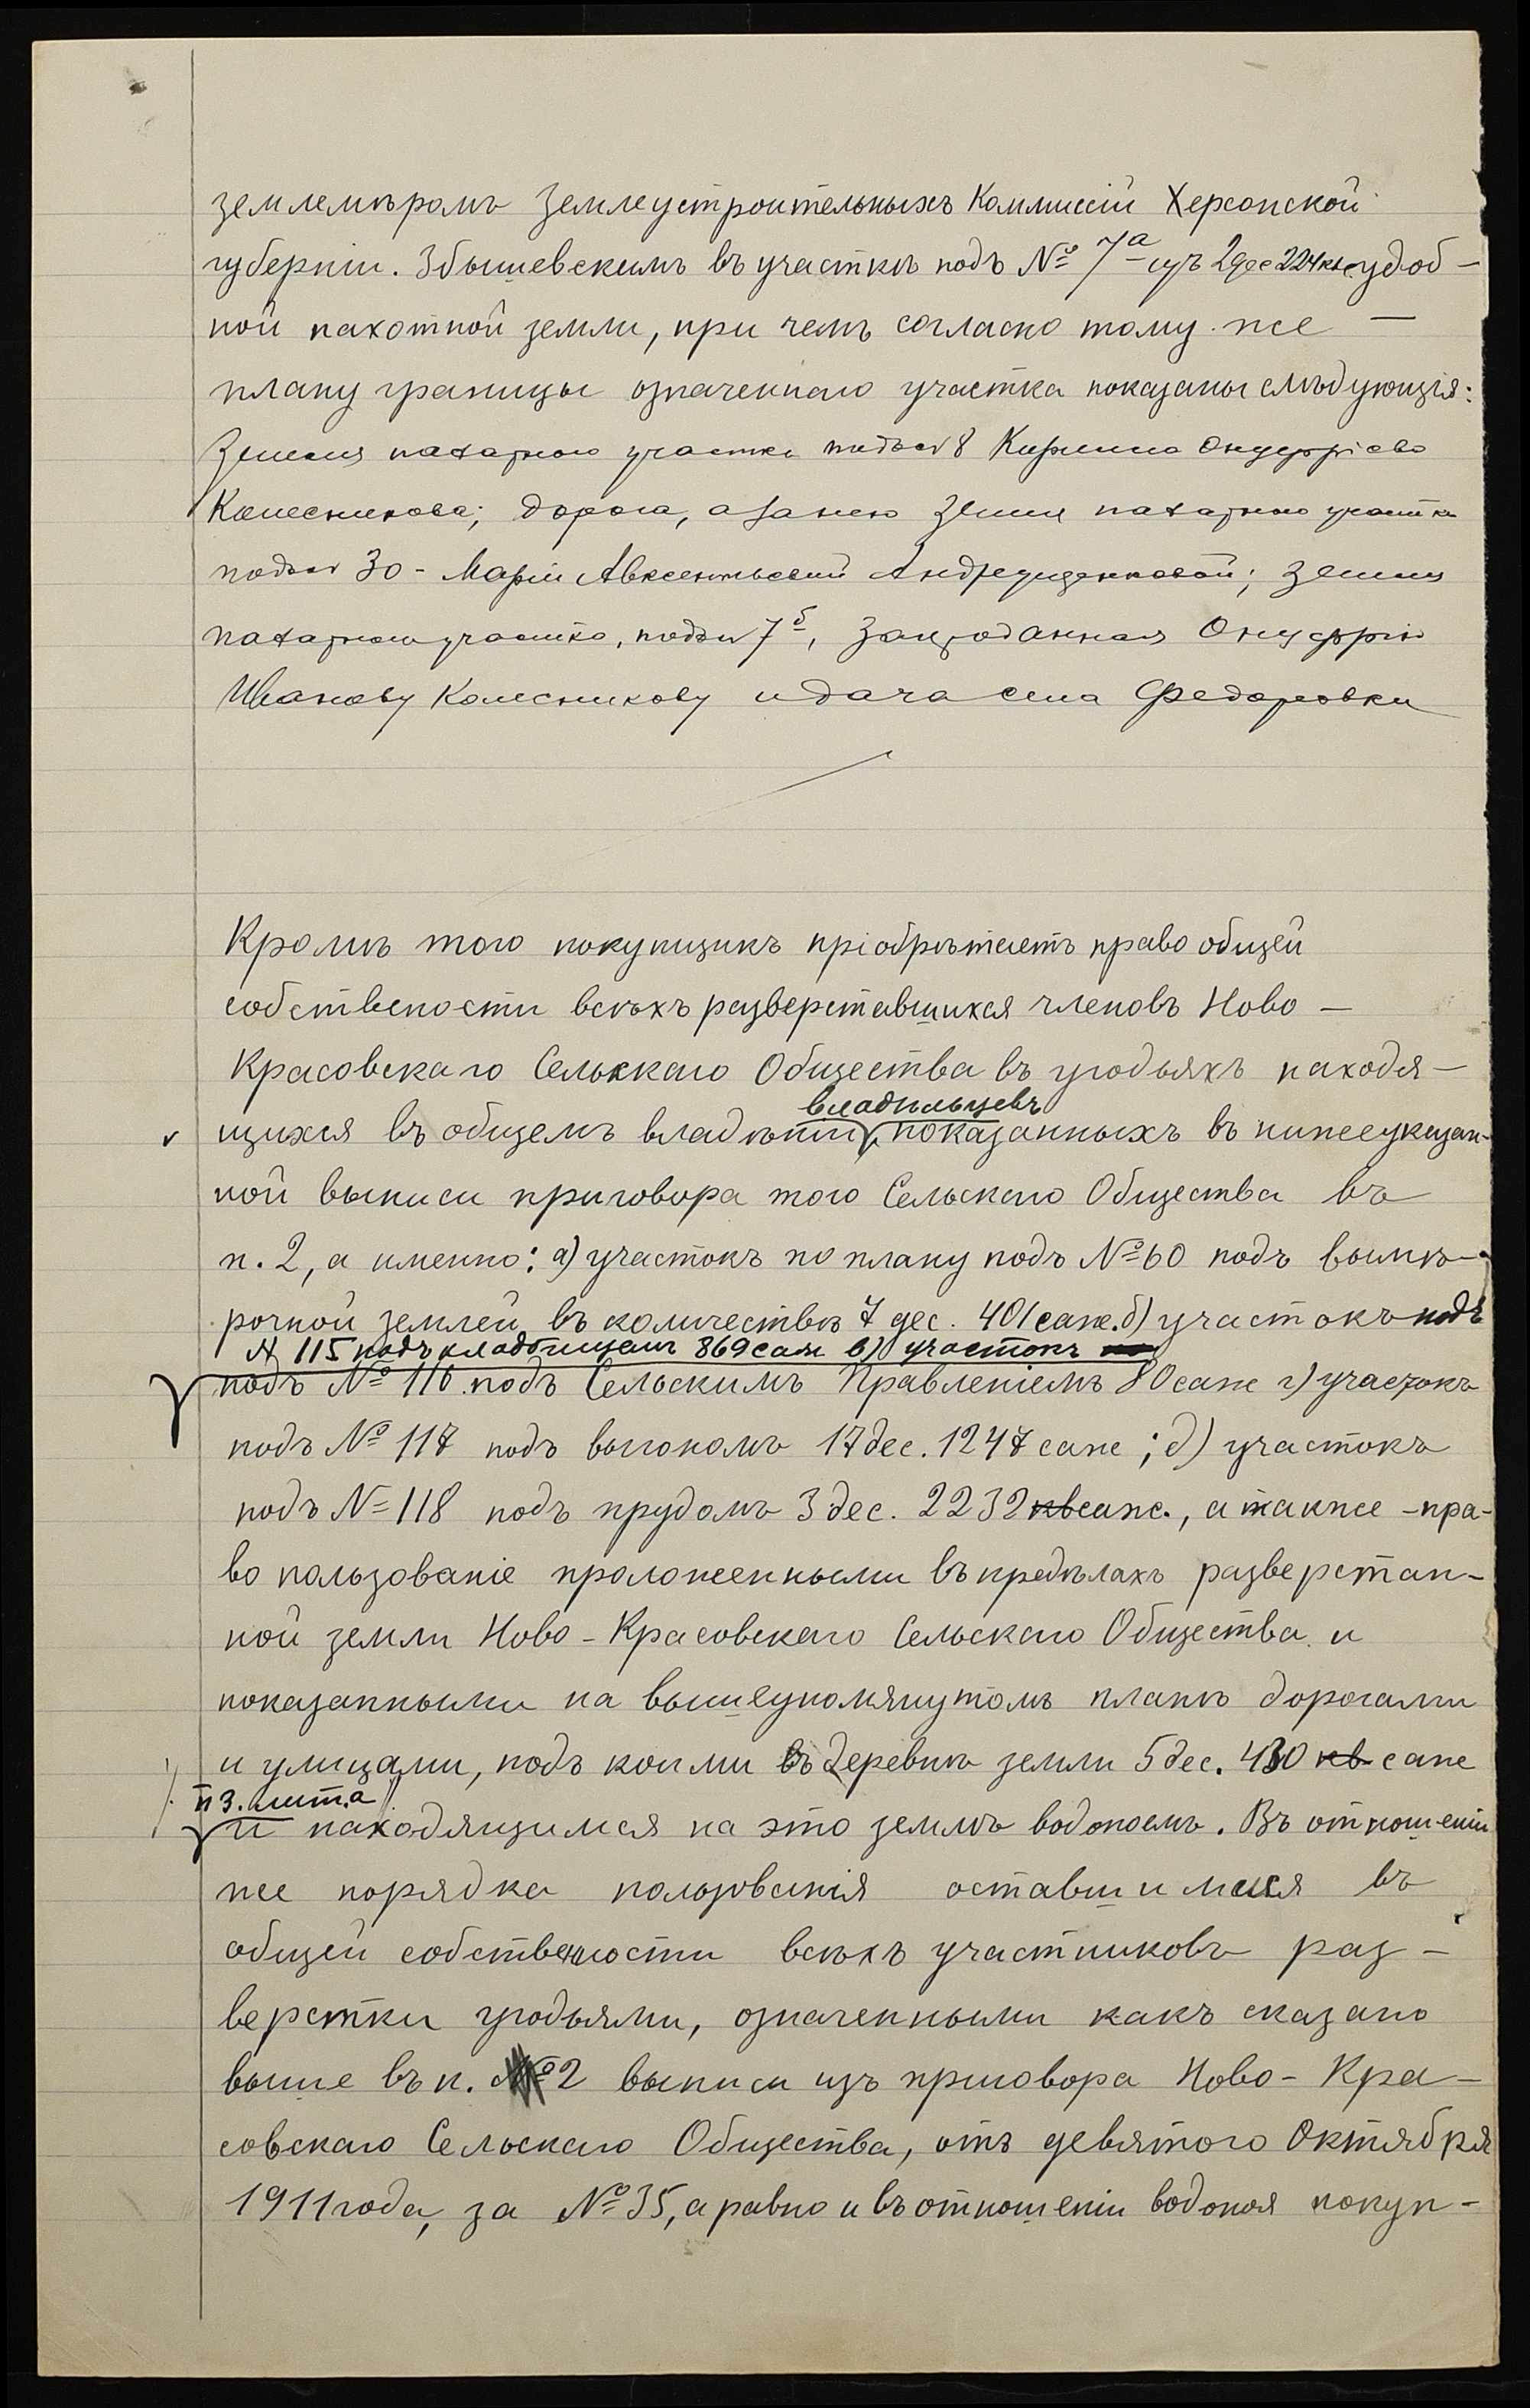 землемѣромъ Землеустроительныхъ Коммиссій Херсонской
губерніи. Збышевскимъ въ участкѣ подъ № 7а изъ 2 дес 224 кв. удоб-
ной пахотной земли, при чемъ согласно тому же —
плану границы означеннаго участка показаны слѣдующія:
Земля пахатнаго участка подъ № 8 Кирилла Онуфріева
Колесникова; дорога, а за нею земля пахатнаго участка
подъ № 30 - Маріи Авксентьевой Андрющенковой; земля
пахатнаго участка, подъ № 7б, запроданная Онуфрію
Иванову Колесникову и дача села Федоровки
Кромѣ того покупщикъ пріобрѣтаетъ право общей
собствености всѣхъ разверставшихся членовъ Ново —
Красовскаго Сельскаго Общества въ угодьяхъ находя —
владѣльцевъ
щихся въ общемъ владѣніи показанныхъ въ нижеуказан-
ной выписи приговора того Сельскаго Общества въ
п. 2, а именно: а) участокъ по плану подъ № 60 подъ вымѣ-
рочной землей въ количествѣ 7 дес. 401 саж. б) участокъ подъ
№ 115 подъ кладбищемъ 869 саж в) участокъ
подъ № 116 подъ Сельскимъ Правленіемъ 80 саж г) участокъ
подъ № 117 подъ выгономъ 17 дес. 1247 саж; д) участокъ
подъ № 118 подъ прудомъ 3 дес. 2232 кв саж., а также - пра-
во пользованіе проложенными въ предѣлахъ разверстан-
ной земли Ново - Красовскаго Сельскаго Общества и
показанными на вышеупомянутомъ планѣ дорогами
и улицами, подъ коими въ деревнѣ земли 5 дес. 430 кв саж
п 3. листа
и находящимся на это землѣ водопоемъ. Въ отношеніи
же порядка пользованія оставшимися въ
общей собственности всѣхъ участниковъ раз —
верстки угодьями, означенными какъ сказано
выше въ п. № 2 выписи изъ приговора Ново - Кра —
совскаго Сельскаго Общества, отъ девятого Октября
1911 года, за № 35, а равно и въ отношеніи водопоя покуп -